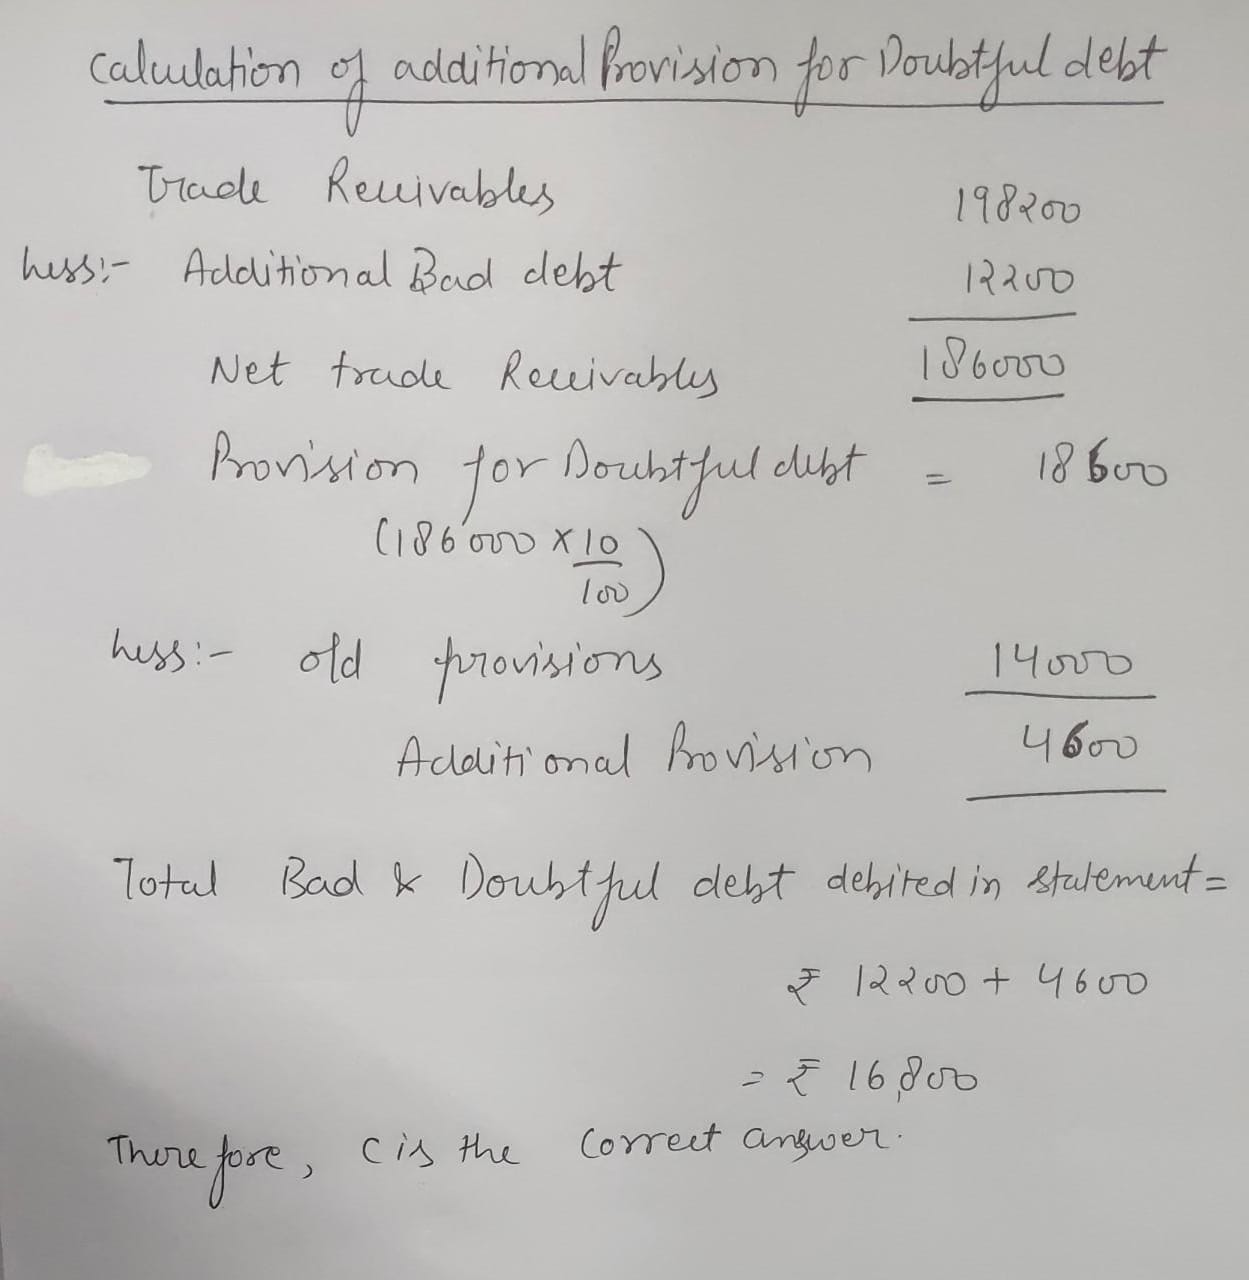 Calculation of additional Provision for Doubtful debt
Trade Receivables 198200
Less:- Additional Bad debt 12200
Net trade Receivables 186000
Provision for Doubtful debt = 18600
(186000 x 10/100)
Less:- old provisions 14000
Additional Provision 4600
Total Bad & Doubtful debt debited in statement =
₹ 12200 + 4600
= ₹ 16,800
Therefore, C is the Correct answer.